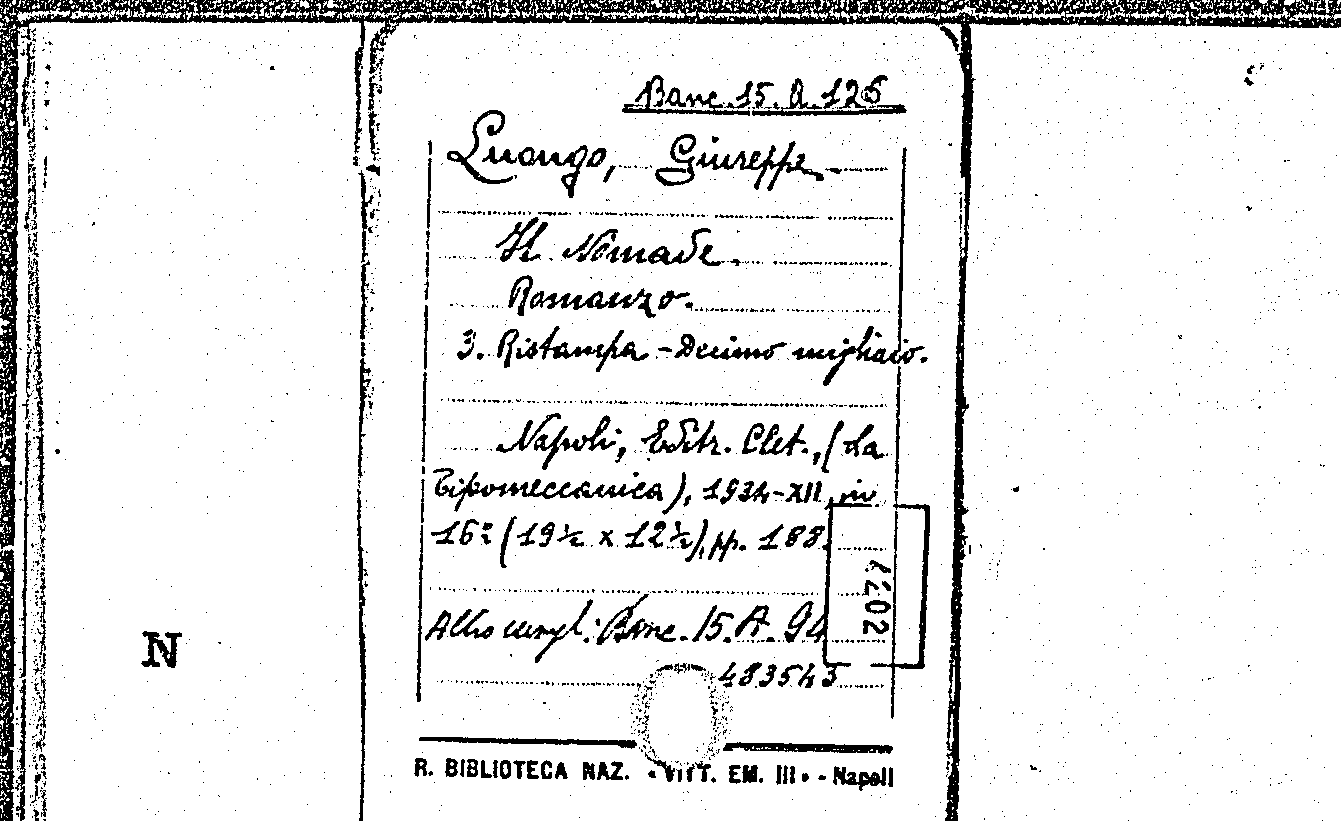 Banc. 15. A. 126
Luongo, Giuseppe
Il Nomade.
Romanzo.
3. Ristampa - Decimo migliaio.
Napoli, Editr. Clet., (La
Tipomeccanica), 1934-XII, in
16º (19½ x 12½), pp. 188.
Altro esempl: Banc. 15. A. 94
483543
N
R. BIBLIOTECA NAZ. « VITT. EM. III » - Napoli